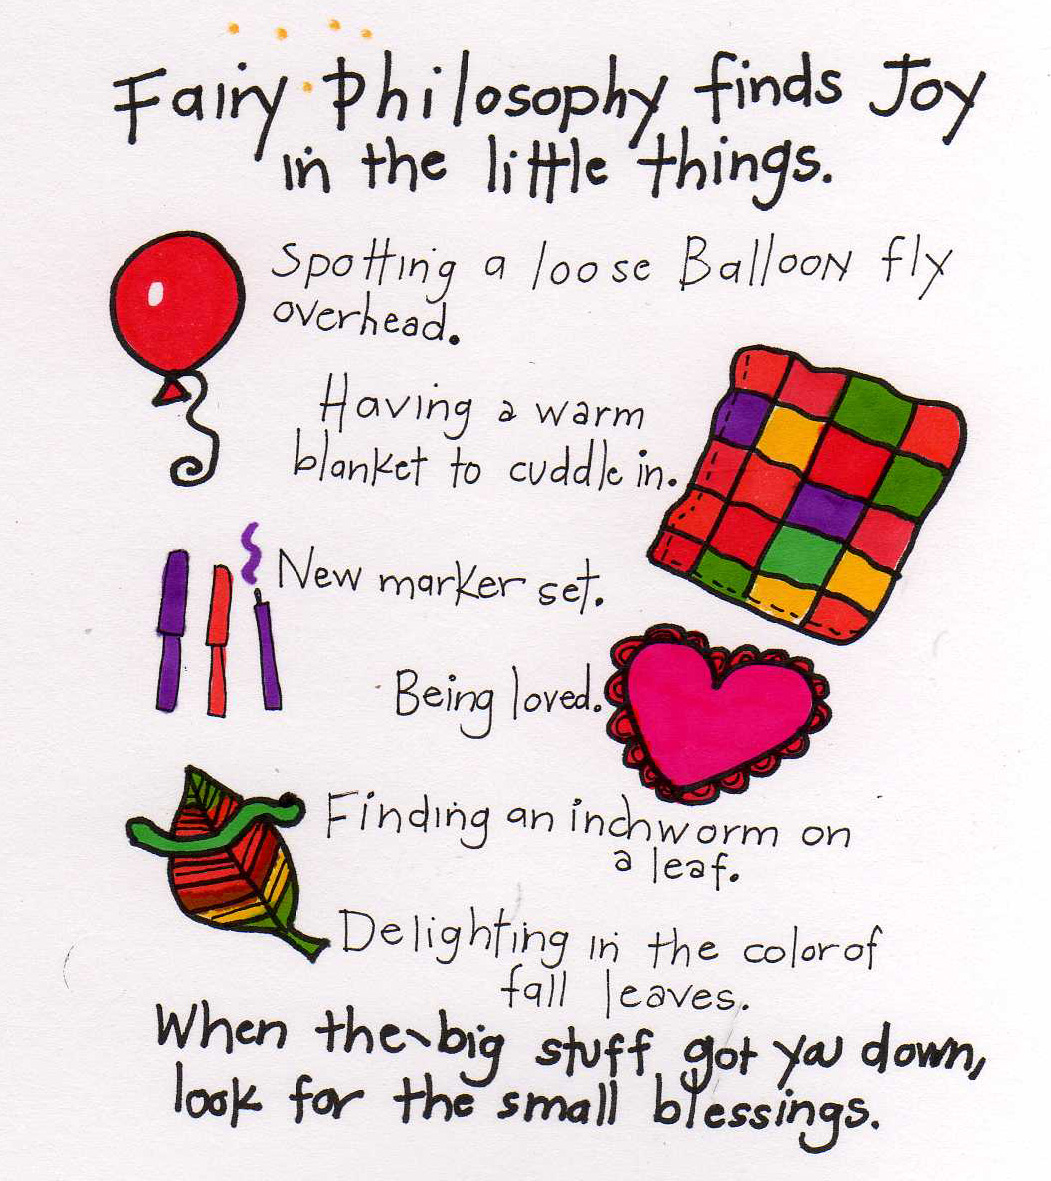 Fairy Philosophy finds Joy
in the little things.
Spotting a loose Balloon fly
overhead.
Having a warm
blanket to cuddle in.
New marker set.
Being loved.
Finding an inchworm on
a leaf.
Delighting in the color of
fall leaves.
When the big stuff got ya down,
look for the small blessings.